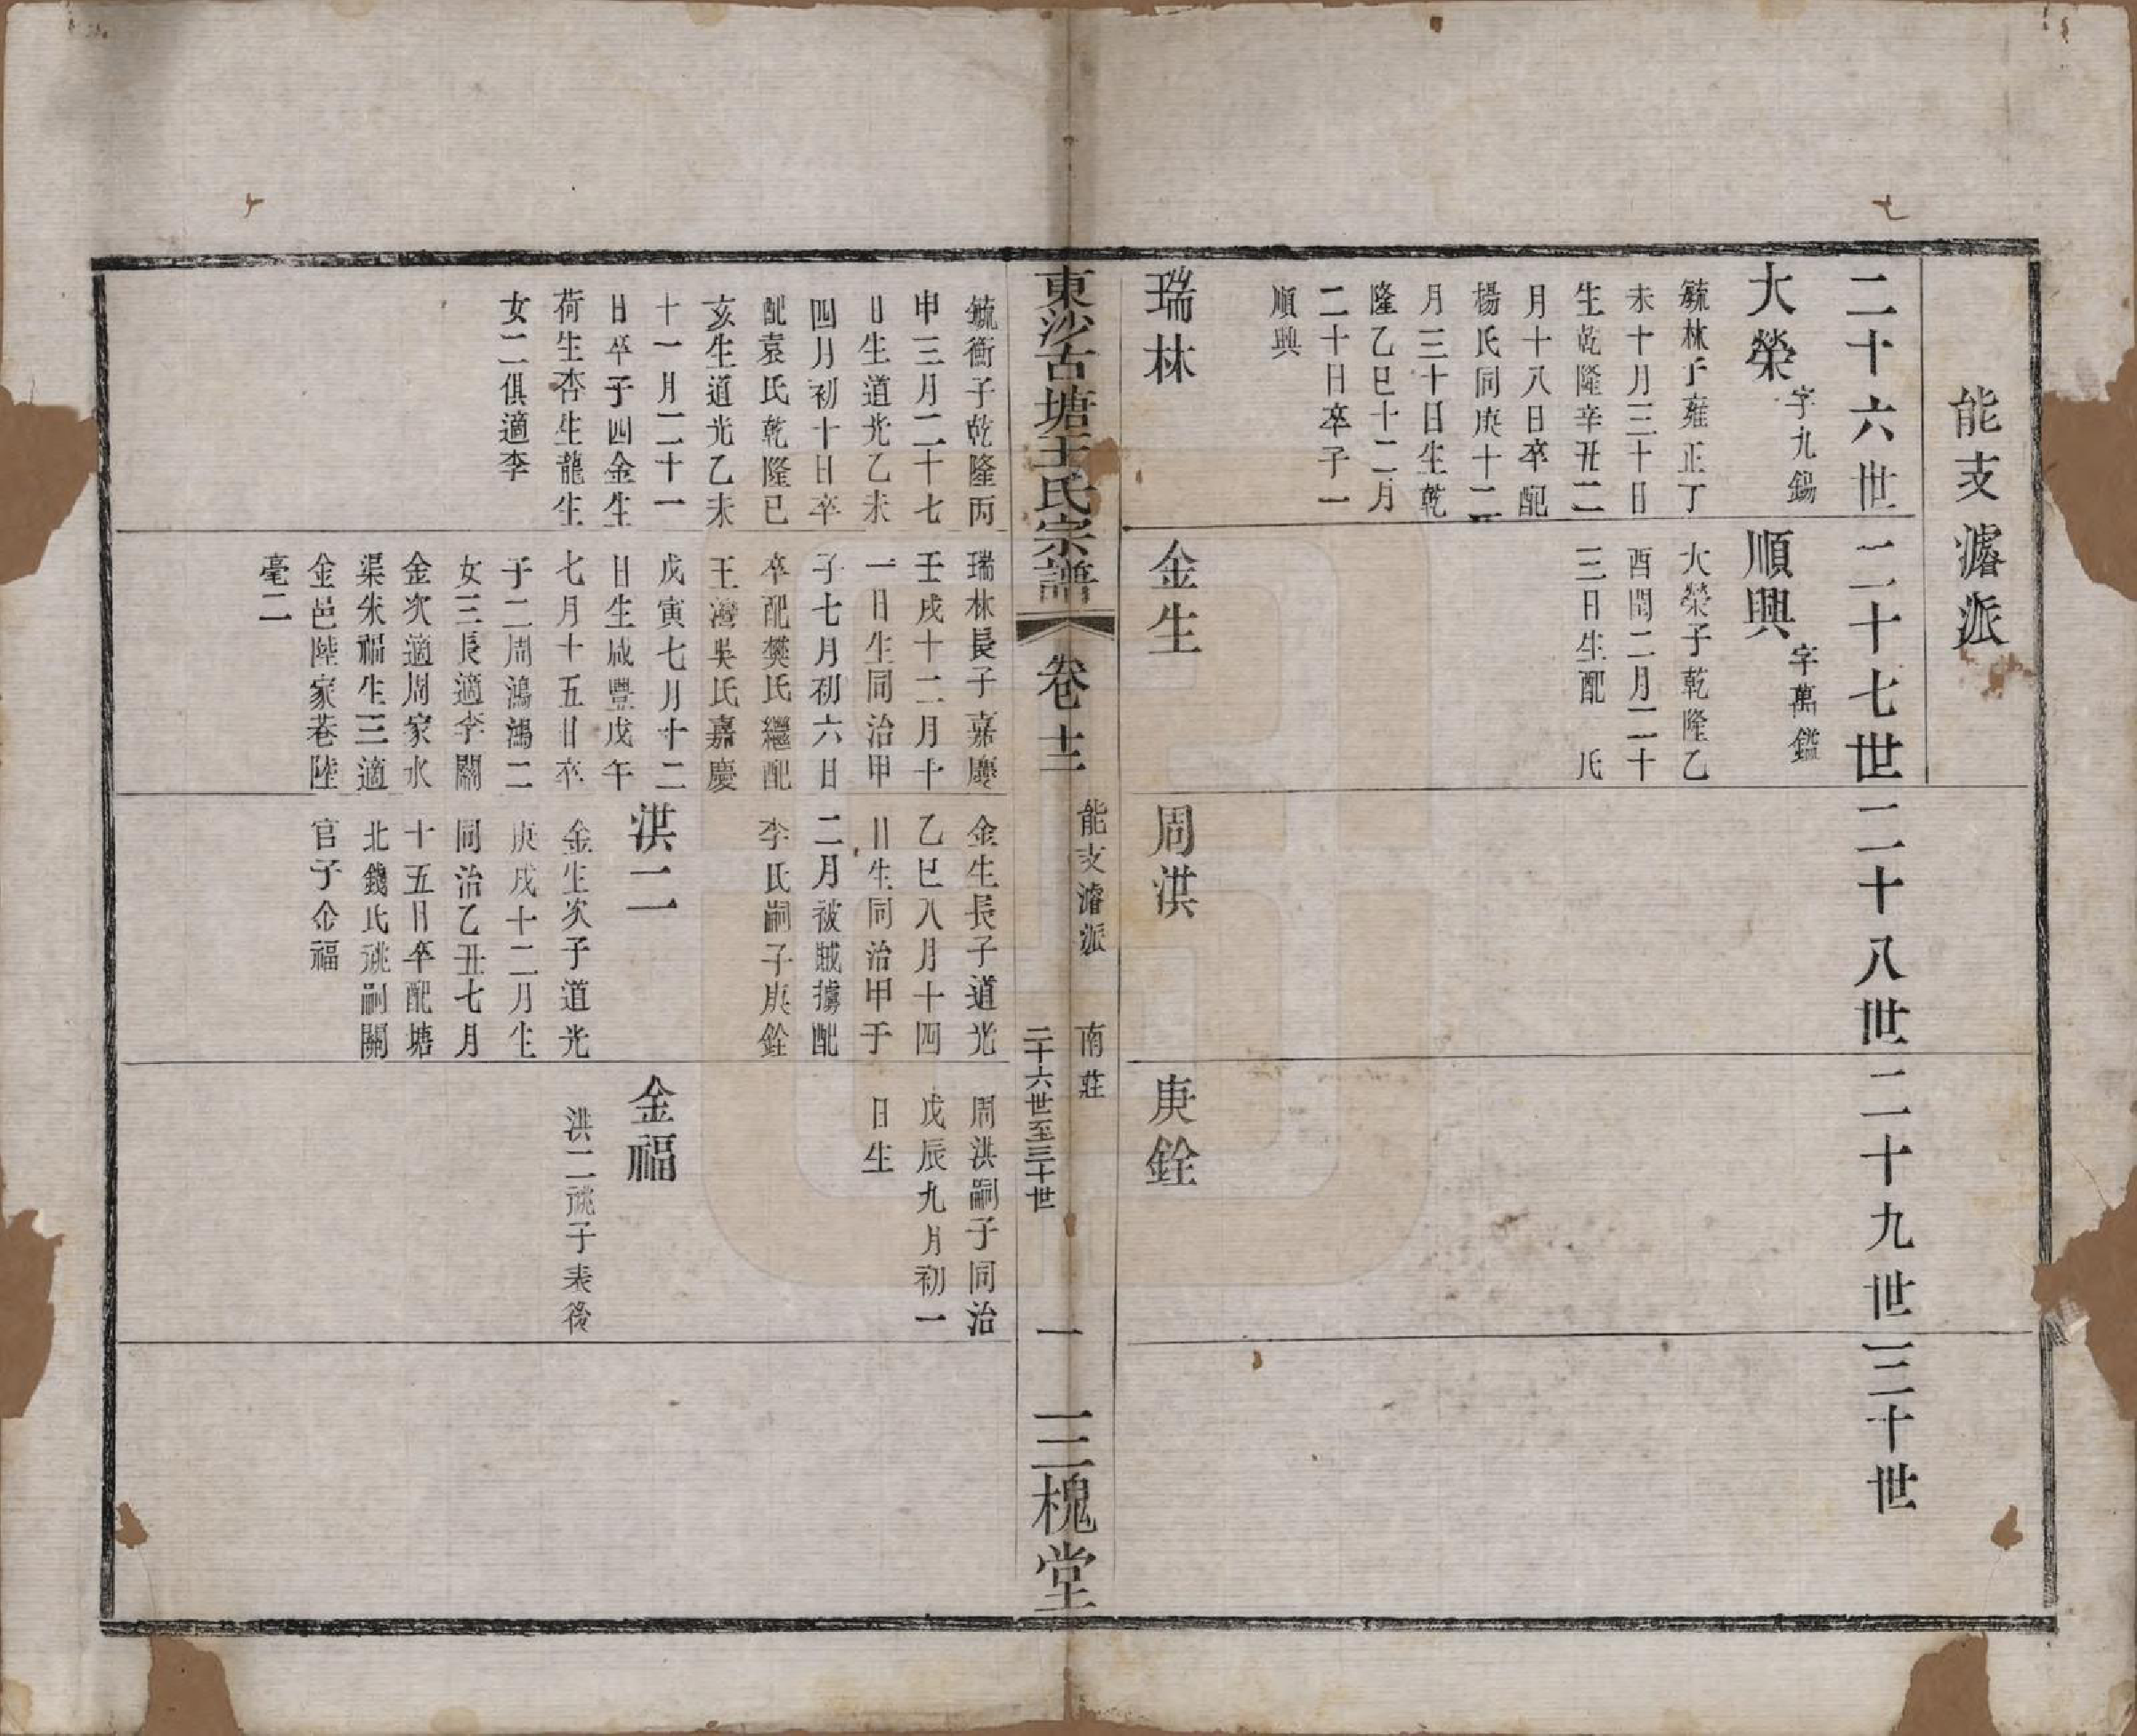 能支濬派
二十六世
二十七世
二十八世
二十九世
三十世
大榮
字九錫
毓林子雍正丁
未十月三十日
生乾隆辛丑二
月十八日卒配
楊氏同庚十二
月三十日生乾
隆乙巳十二月
二十日卒子一
順興
順興
字萬鑑
大榮子乾隆乙
酉閏二月二十
三日生配 氏
瑞林
金生
周洪
庚銓
東沙古塘王氏宗譜
卷十二
能支濬派 南莊
二十六世至三十世
一
三槐堂
毓衡子乾隆丙
申三月二十七
日生道光乙未
四月初十日卒
配袁氏乾隆己
亥生道光乙未
十一月二十一
日卒子四金生
荷生杏生龍生
女二俱適李
瑞林長子嘉慶
壬戌十二月十
一日生同治甲
子七月初六日
卒配樊氏繼配
王灣吳氏嘉慶
戊寅七月十二
日生咸豐戊午
七月十五日卒
子二周鴻鴻二
女三長適李關
金次適周家水
渠朱福生三適
金邑陸家巷陸
毫二
金生長子道光
乙巳八月十四
日生同治甲子
二月被賊擄配
李氏嗣子庚銓
洪二
金生次子道光
庚戌十二月生
同治乙丑七月
十五日卒配塘
北錢氏祧嗣關
官子金福
周洪嗣子同治
戊辰九月初一
日生
金福
洪二祧子表後